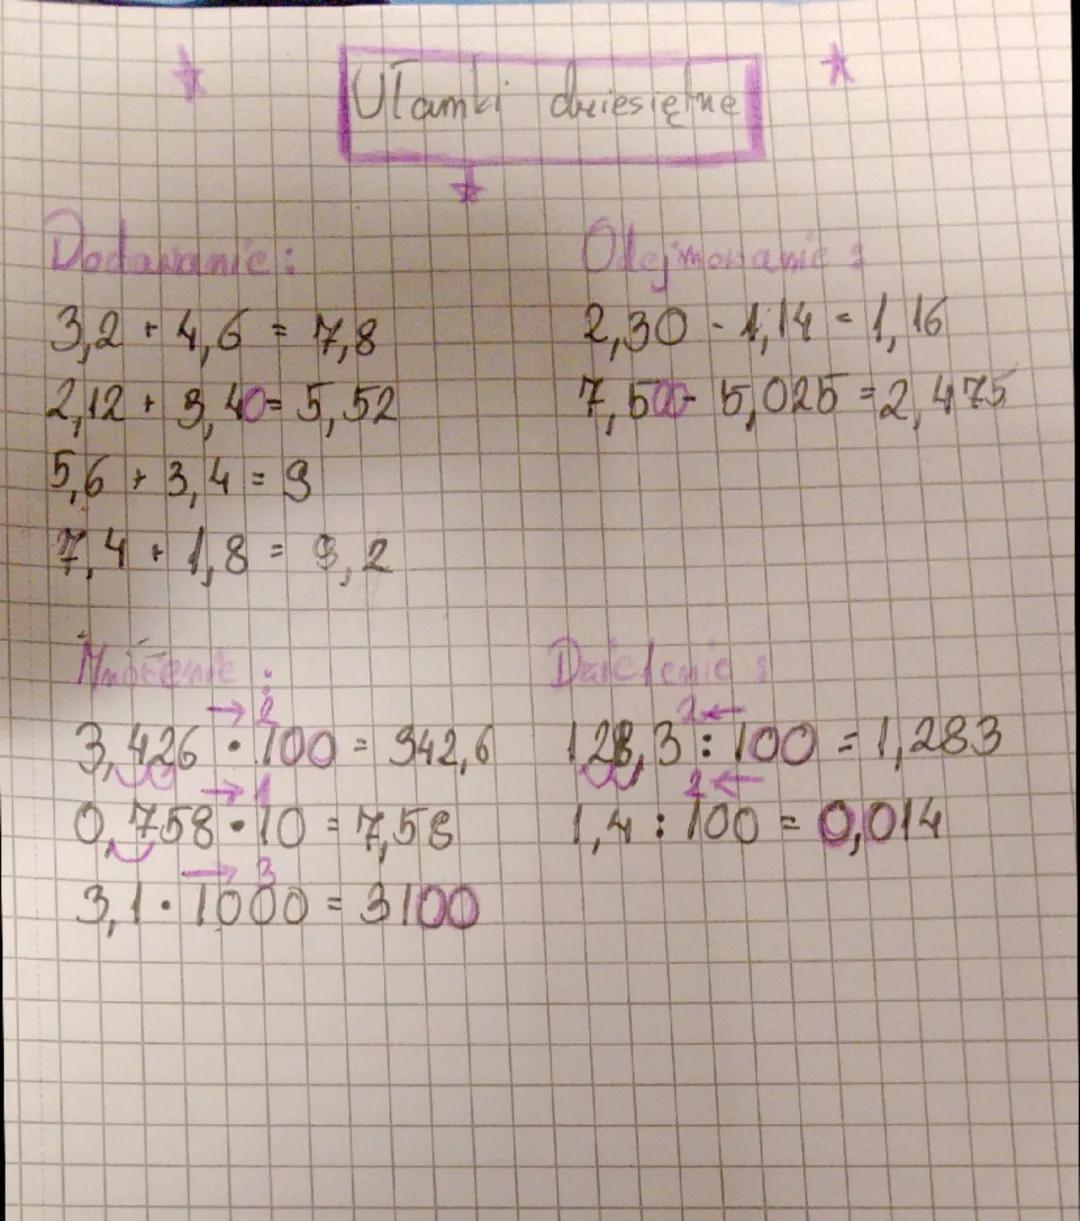 Ułamki dziesiętne
Dodawanie:
3,2 + 4,6 = 7,8
2,12 + 3,40 = 5,52
5,6 + 3,4 = 9
7,4 + 1,8 = 9,2
Odejmowanie:
2,30 - 1,14 = 1,16
7,500 - 5,025 = 2,475
Mnożenie:
→ 2
3,426 · 100 = 342,6
→ 1
0,758 · 10 = 7,58
→ 3
3,1 · 1000 = 3100
Dzielenie:
2 ←
128,3 : 100 = 1,283
2 ←
1,4 : 100 = 0,014